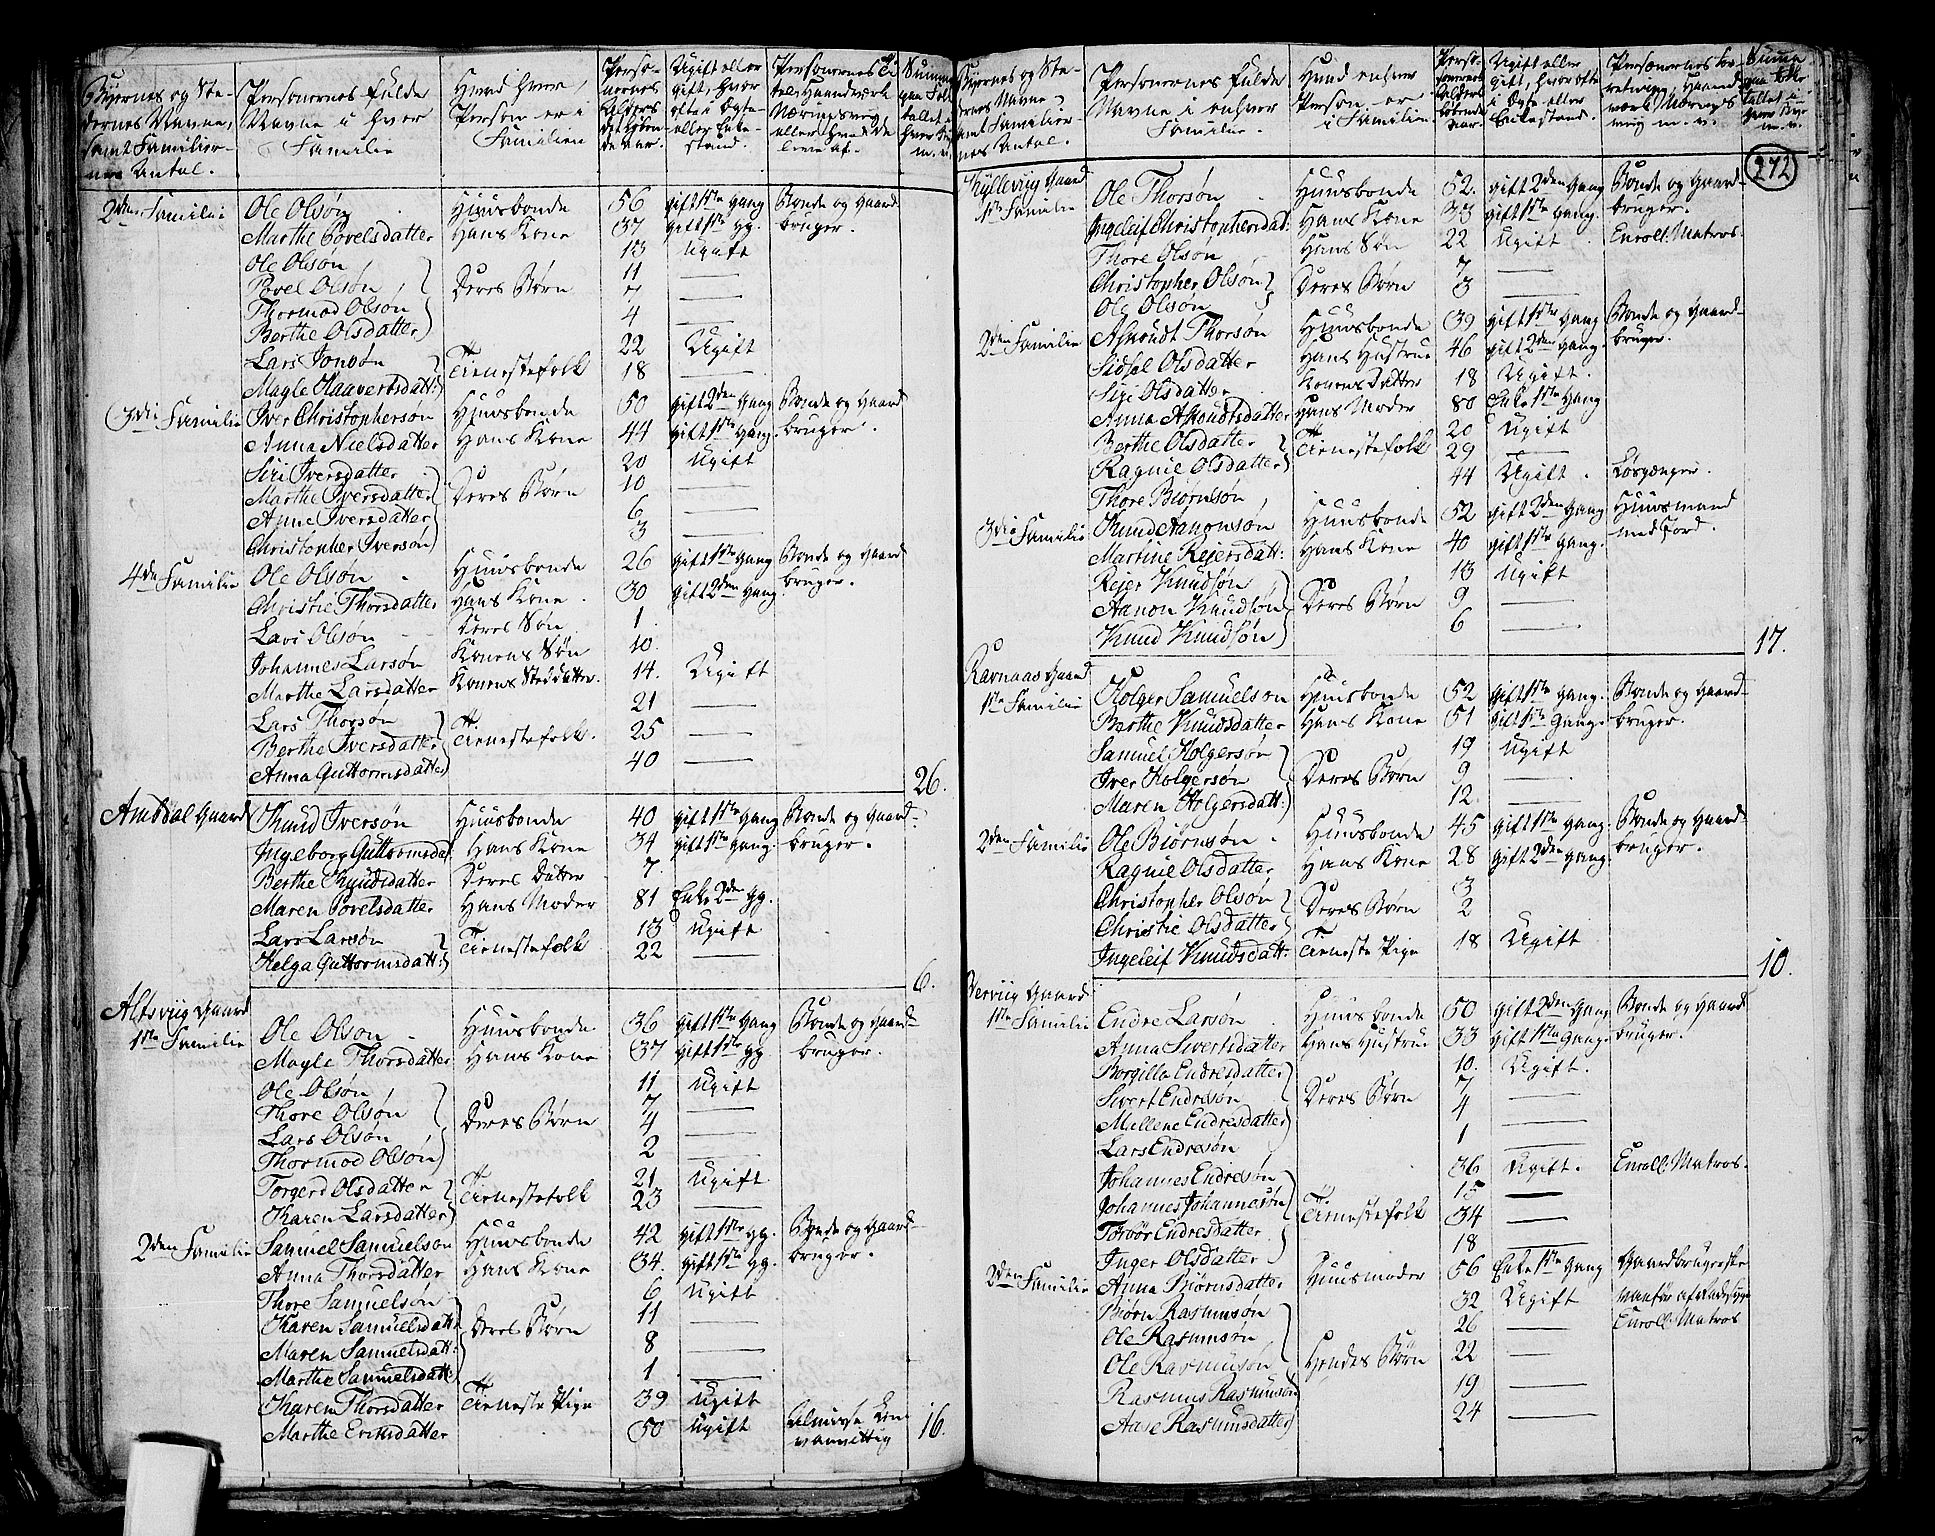 Byernes og Stedernes Navne, samt Familiernes Antal.
Personernes fulde Navne i hver Familie
Hvad hver Person er i Familien
Personernes Alders det løbende Aar.
Ugift eller gift, hvor ofte i Ægte- eller Enkestand.
2den Familie Ole Olsøn Huusbonde 56 gift 1ste Gang Bonde og Gaard-
Marthe Povelsdatter Hans Kone 37 gift 1ste Gg. bruger.
Ole Olsøn 13 ugift
Povel Olsøn Deres Børn 11
Thormod Olsøn 7
Berthe Olsdatter 4
Lars Jonsøn 22 Ugift
Magle Haavertsdatt: Tienestefolk 18
3die Familie Iver Christophersøn Huusbonde 50 gift 2den Gang Bonde og Gaard
Anna Nielsdatter Hans Kone 44 gift 1ste Gang. bruger.
Siri Iversdatter 20 ugift
Marthe Iversdatter Deres Børn 10
Anne Iversdatter 6
Christopher Iversøn 3
4de Familie Ole Olsøn Huusbonde 26 gift 1ste Gang Bonde og Gaard
Christie Thorsdatter Hans Kone 30 gift 2den Gang. bruger.
Lars Olsøn Deres Søn 1
Johannes Larsøn Konens Søn 10.
Marthe Larsdatter Konens Steddatter. 14. Ugift
Lars Thorsøn 21
Berthe Iversdatter Tienestefolk. 25
Anna Guttormsdatter 40
26.
Amdal Gaard Knud Iversøn Huusbonde 40 gift 1ste Gang Bonde og Gaard-
Ingeborg Guttormsdat Hans Kone 34 gift 1ste Gang. bruger.
Berthe Knudsdatter Deres Datter 7.
Maren Povelsdatter Hans Moder 81 Enke 2den Gg.
Lars Larsøn 13 ugift
Helga Guttormsdatt: Tienestefolk 22
6.
Altsviig Gaard
1ste Familie Ole Olsøn Huusbonde 36 gift 1ste Gang Bonde og Gaard-
Magle Thorsdatter Hans Kone 37 gift 1ste Gg. bruger.
Ole Olsøn 11 ugift
Thore Olsøn 7
Lars Olsøn Deres Børn 4
Thormod Olsøn 2
Torgerd Olsdatter 21 ugift
Karen Larsdatter Tienestefolk 23
2den Familie Samuel Samuelsøn Huusbonde 42 gift 1ste Gg. Bonde og Gaard-
Anna Thorsdatter Hans Kone 34. gift 1ste Gg. bruger.
Thore Samuelsøn 6 ugift
Karen Samuelsdatt Deres Børn 11
Maren Samuelsdatt: 8
Marthe Samuelsdatt: 1
Karen Thorsdatter Tieneste Pige 39 ugift
Marthe Eriksdatter 50 ugift
vanvittig
16.
Byernes og Stedernes Navne, samt Familiernes Antal.
Personernes fulde Navne i enhver Familie.
Hvad enhver Person er i Familien
Ugift eller gift, hvor ofte i Ægte eller Enkestand.
272
Kyllevig Gaard
1ste Familie Ole Thorsøn Huusbonde 52. gift 2den Gang Bonde og Gaard-
Ingeleif Christophersdat: Hans Kone 33 gift 1ste Gang. bruger.
Thore Olsøn Hans Søn 22 ugift Enroll: Matros.
Christopher Olsøn Deres Børn 7
Ole Olsøn 3
2den Familie Asoudt Thorsøn Huusbonde 39 gift 1ste Gang Bonde og Gaard-
Sidsel Olsdatter Hans Hustrue 46 gift 2den Gang. bruger.
Siri Olsdatter Konens Datter 18 Ugift.
Anna Asoudtsdatter Hans Moder 80 Enke 1ste Gang
Berthe Olsdatter 20 ugift
Ragnie Olsdatter Tienestefolk 29
Thore Biørnsøn 44 Ugift. Løsgænger.
3die Familie Knud Aanonsøn Huusbonde 52 gift 2den Gang Huusmand
Martine Reiersdatt: Hans Kone 40 gift 1ste Gang. med Jord.
Reier Knudsøn 13 ugift
Aanon Knudsøn Deres Børn 9
Knud Knudsøn 6
17.
Ravnaas Gaard
1ste Familie Holger Samuelson Huusbonde 52 gift 1ste Gang. Bonde og Gaard-
Berthe Knudsdatter Hans Kone 51 gift 1ste Gang. bruger.
Samuel Holgersøn 19 ugift
Iver Holgersøn Deres Børn 9
Maren Holgersdatt: 12.
2den Familie Ole Biørnsøn Huusbonde 45 gift 1ste Gang. Bonde og Gaard-
Ragnie Olsdatter Hans Kone 28 gift 2den Gang. bruger.
Christopher Olsøn 3
Christie Olsdatter Deres Børn 2
Ingeleif Knudsdatt: Tieneste Pige 18 Ugift
10.
Verviig Gaard
1ste Familie Endre Larsøn Huusbonde 50 gift 2den Gang Bonde og Gaard
Anna Sivertsdatter Hans Hustrue 33 gift 1ste Gang. bruger.
Borgilla Endresdatter 10. Ugift.
Sivert Endresøn Deres Børn 7
Mallene Endresdatter 4
Lars Endresøn 1
Johannes Endresøn 36 Ugift. Enroll: Matros.
Johannes Johannesøn 15
Torvør Endresdatter Tienestefolk 34
Inger Olsdatter 18
2den Familie Anna Biørnsdatter Huusmoder 56 Enke 1ste Gang Gaardbrugerske
Biørn Rasmusøn 32 Ugift
Ole Rasmusøn 26 Enroll: Matros
Ole Rasmusøn Hendes Børn 22
Rasmus Rasmusøn 19
Aase Rasmusdatter 24